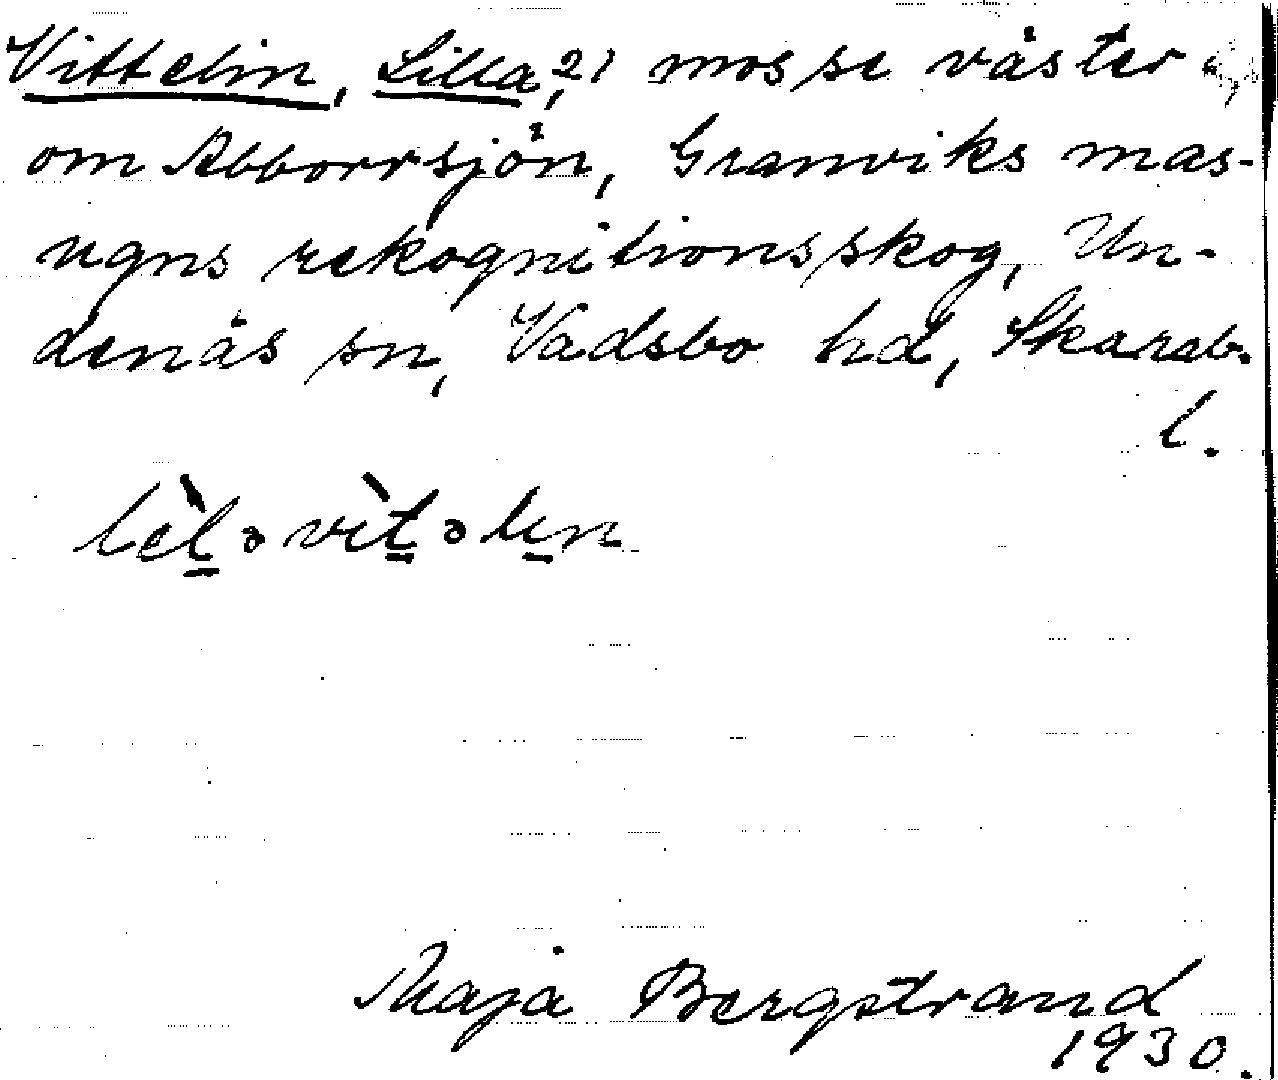 Vittelin, Lilla, 2) mosse väster
om Abborrsjön, Granviks mas-
ugns rekognitionsskog, Un-
denäs sn, Vadsbo hd, Skarab.
l.
lèləvìtəlin
Maja Bergstrand
1930.